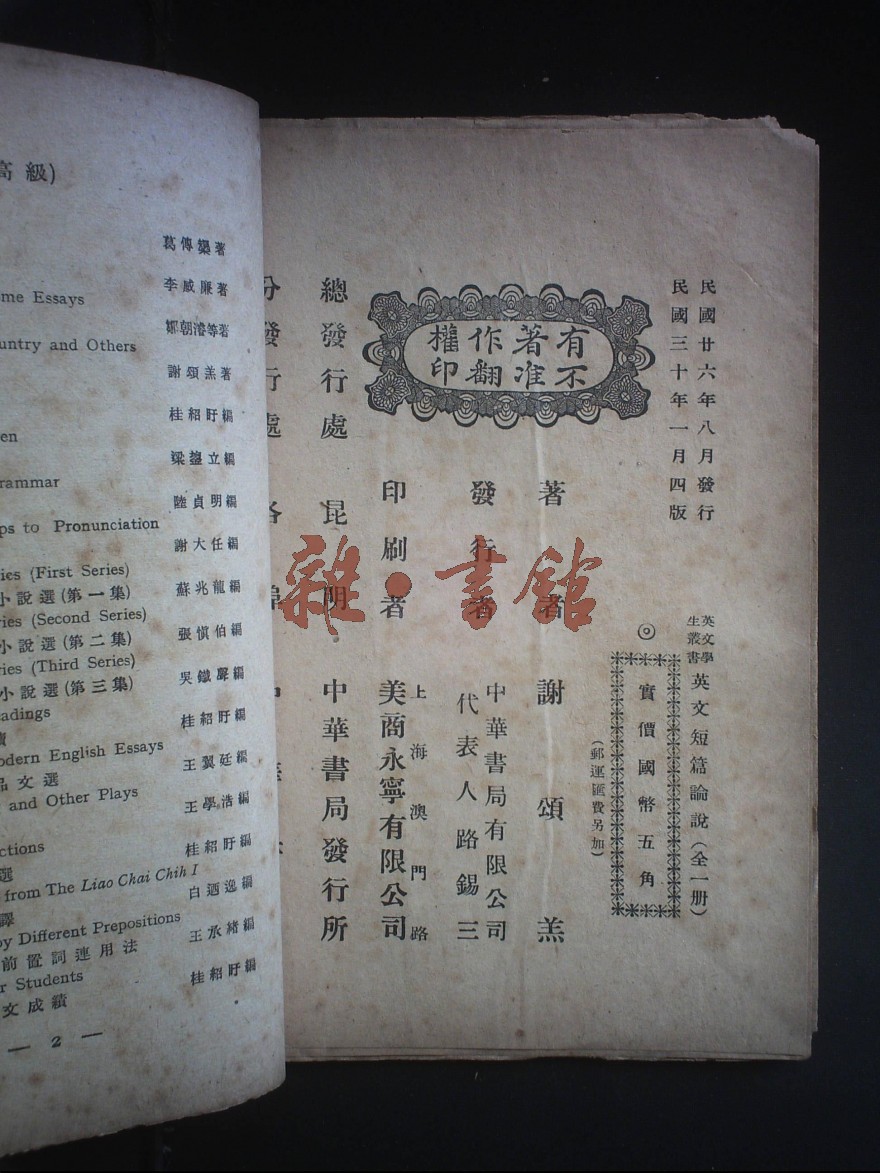 高級)
葛傳槼著
李威廉著
ome Essays
鄒朝濬等著
ountry and Others
謝頌羔著
桂紹盱編
en
梁鋆立編
rammar
陸貞明編
ps to Pronunciation
謝大任編
ries (First Series)
小說選(第一集)
蘇兆龍編
ries (Second Series)
小說選(第二集)
張愼伯編
ries (Third Series)
小說選(第三集)
吳鐵聲編
adings
桂紹盱編
odern English Essays
品文選
王翼廷編
and Other Plays
王學浩編
ctions
選
桂紹盱編
from The Liao Chai Chih I
譯
白迺逸編
by Different Prepositions
前置詞連用法
王承緒編
r Students
文成績
桂紹盱編
— 2 —
民國廿六年八月發行
民國三十年一月四版
英文學生叢書
英文短篇論說(全一册)
◎實價國幣五角
(郵運匯費另加)
有著作權
不准翻印
著者 謝頌羔
發行者 中華書局有限公司
代表人路錫三
印刷者 上海澳門路
美商永寧有限公司
總發行處 昆明 中華書局發行所
分發行處 各埠 中華書
雜·書館